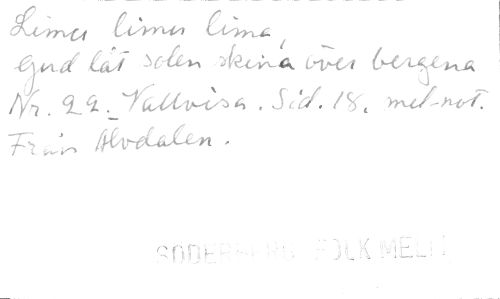 Limu limu lima,
Gud låt solen skina över bergena
Nr. 22. Vallvisa. Sid. 18. mel-not.
Från Älvdalen.
SÖDERBERG FOLKMEL